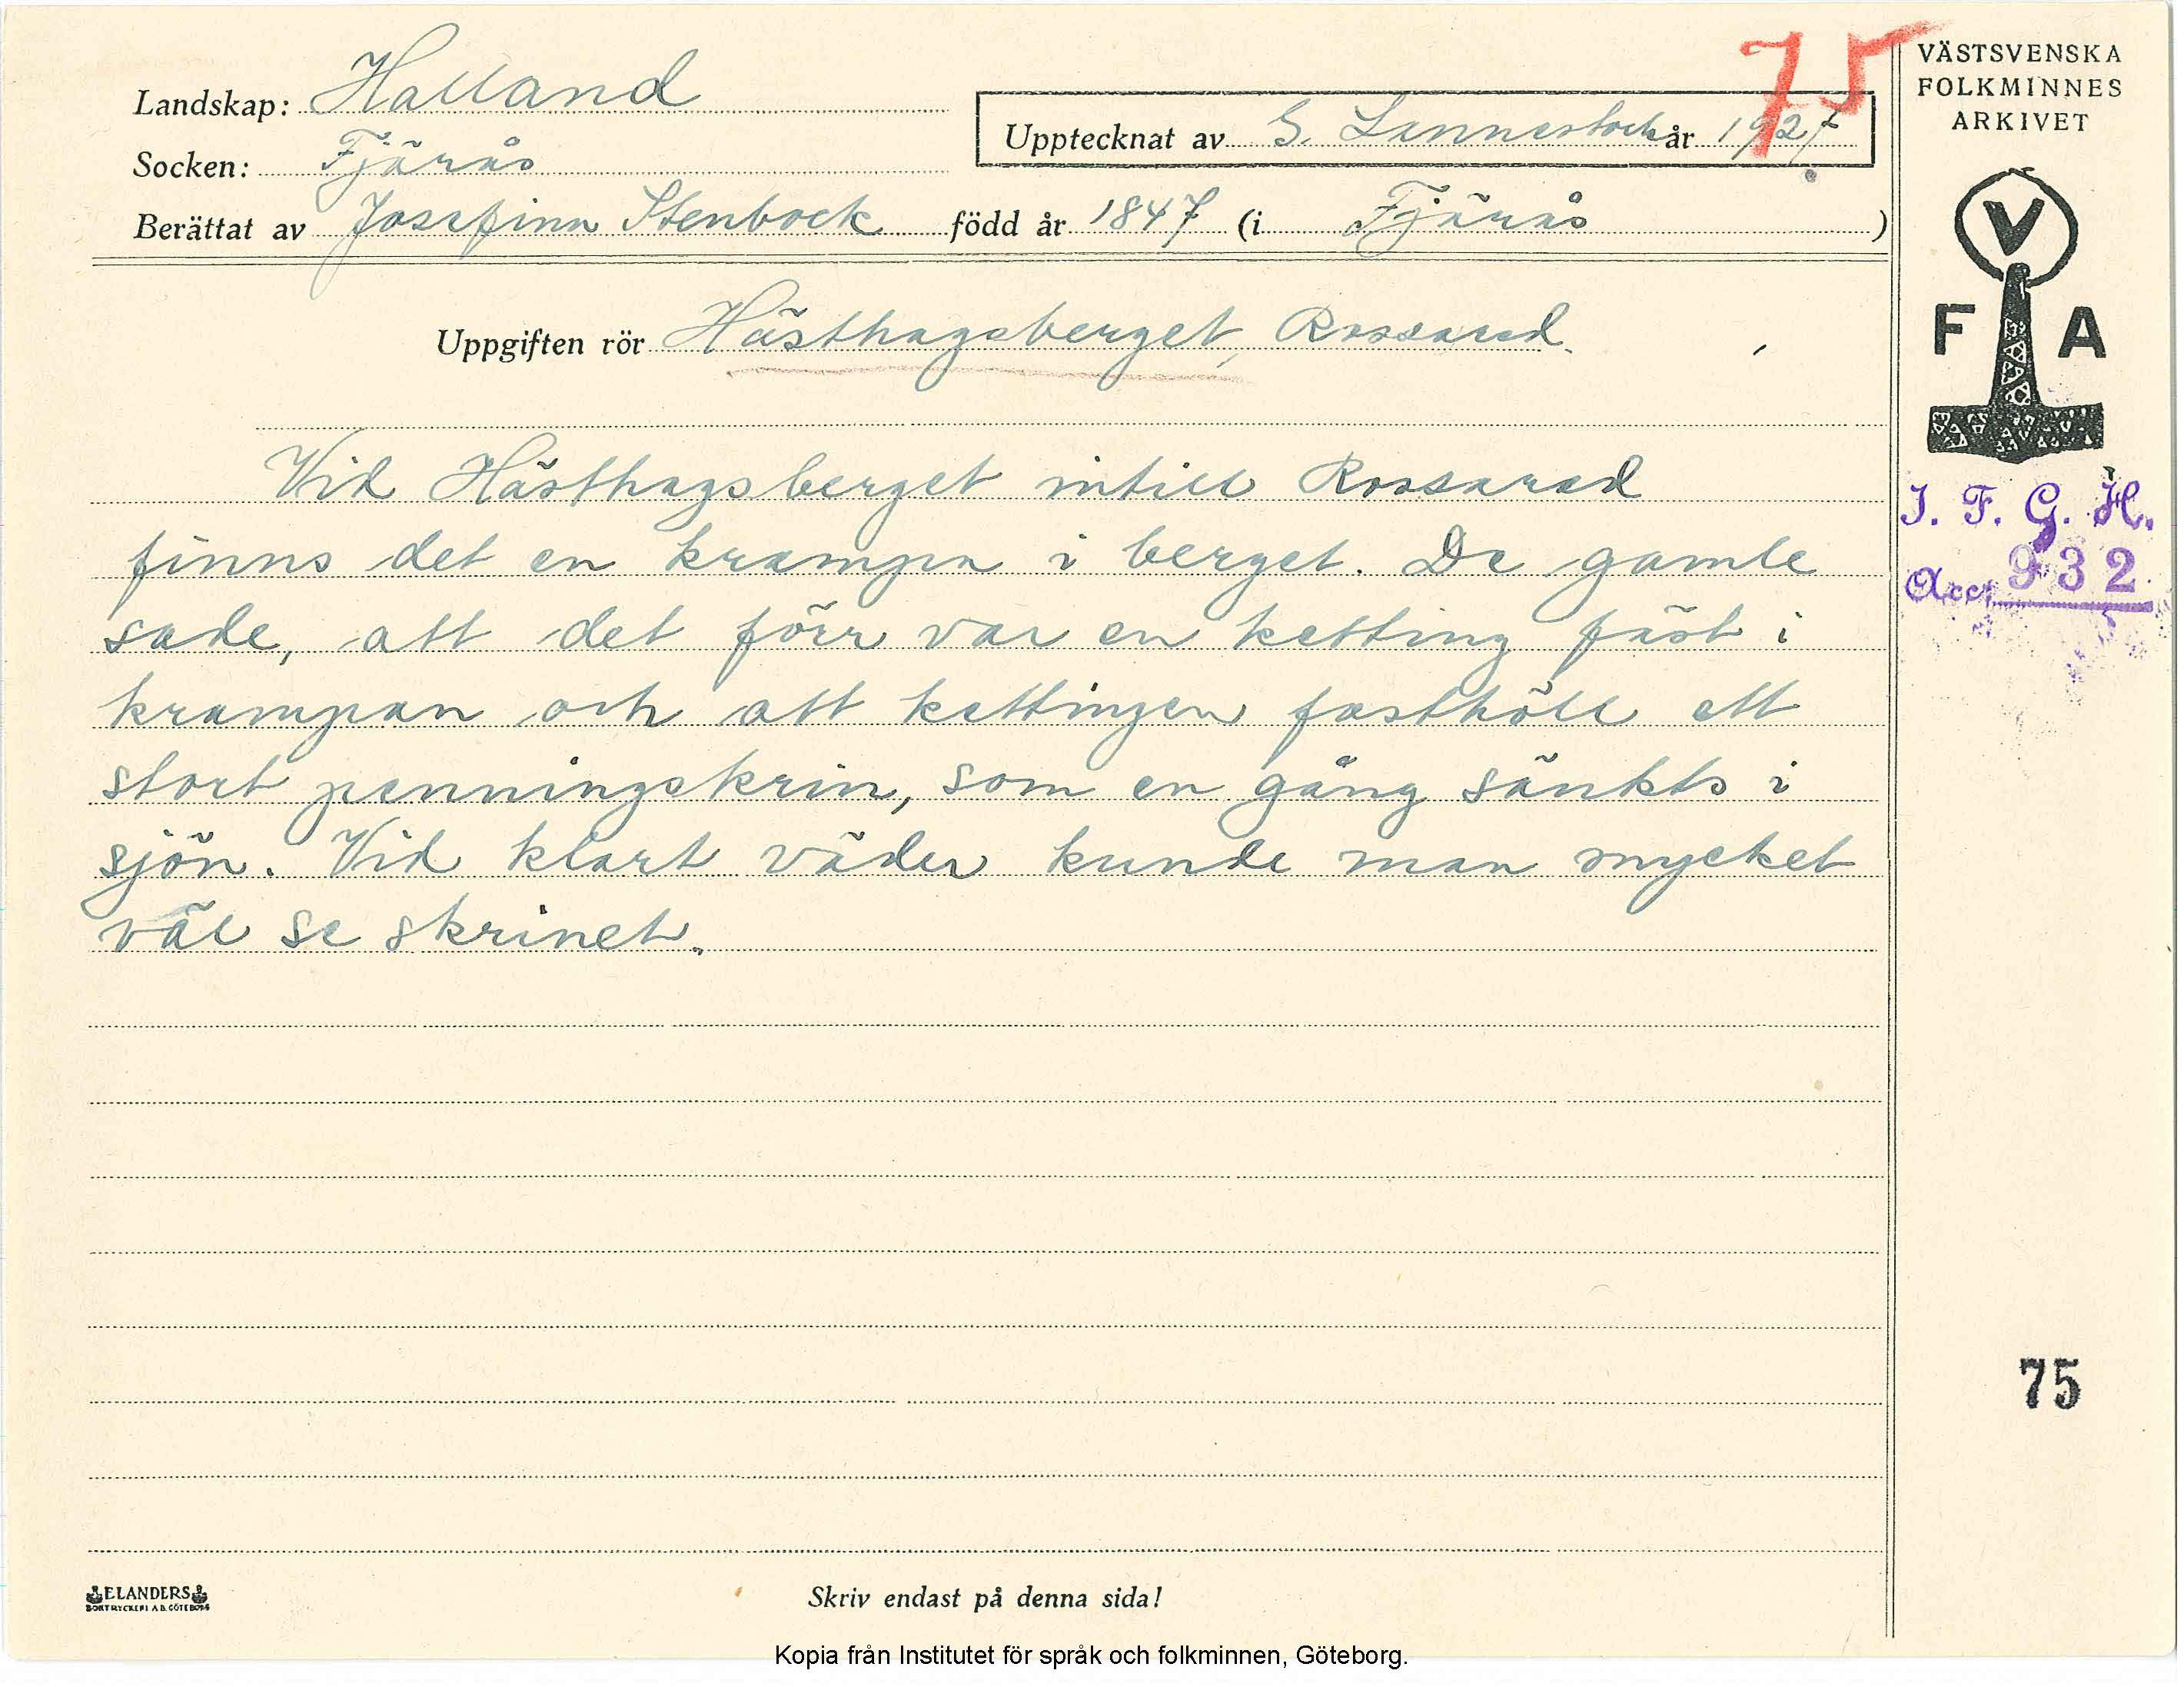 75
VÄSTSVENSKA
FOLKMINNES
ARKIVET
Landskap: Halland
Upptecknat av G. Lannestock år 1927
Socken: Fjärås
Berättat av Josefina Stenbock född år 1847 (i Fjärås)
V
F A
Uppgiften rör Hästhagsberget, Rossared.
Vid Hästhagsberget intill Rossared
finns det en krampa i berget. De gamle
sade, att det förr var en ketting fäst i
krampan och att kettingen fasthöll ett
stort penningskrin, som en gång sänkts i
sjön. Vid klart väder kunde man mycket
väl se skrinet.
I. F. G. H.
Acc. 932
75
ELANDERS
BOKTRYCKERI A.B. GÖTEBORG
Skriv endast på denna sida!
Kopia från Institutet för språk och folkminnen, Göteborg.